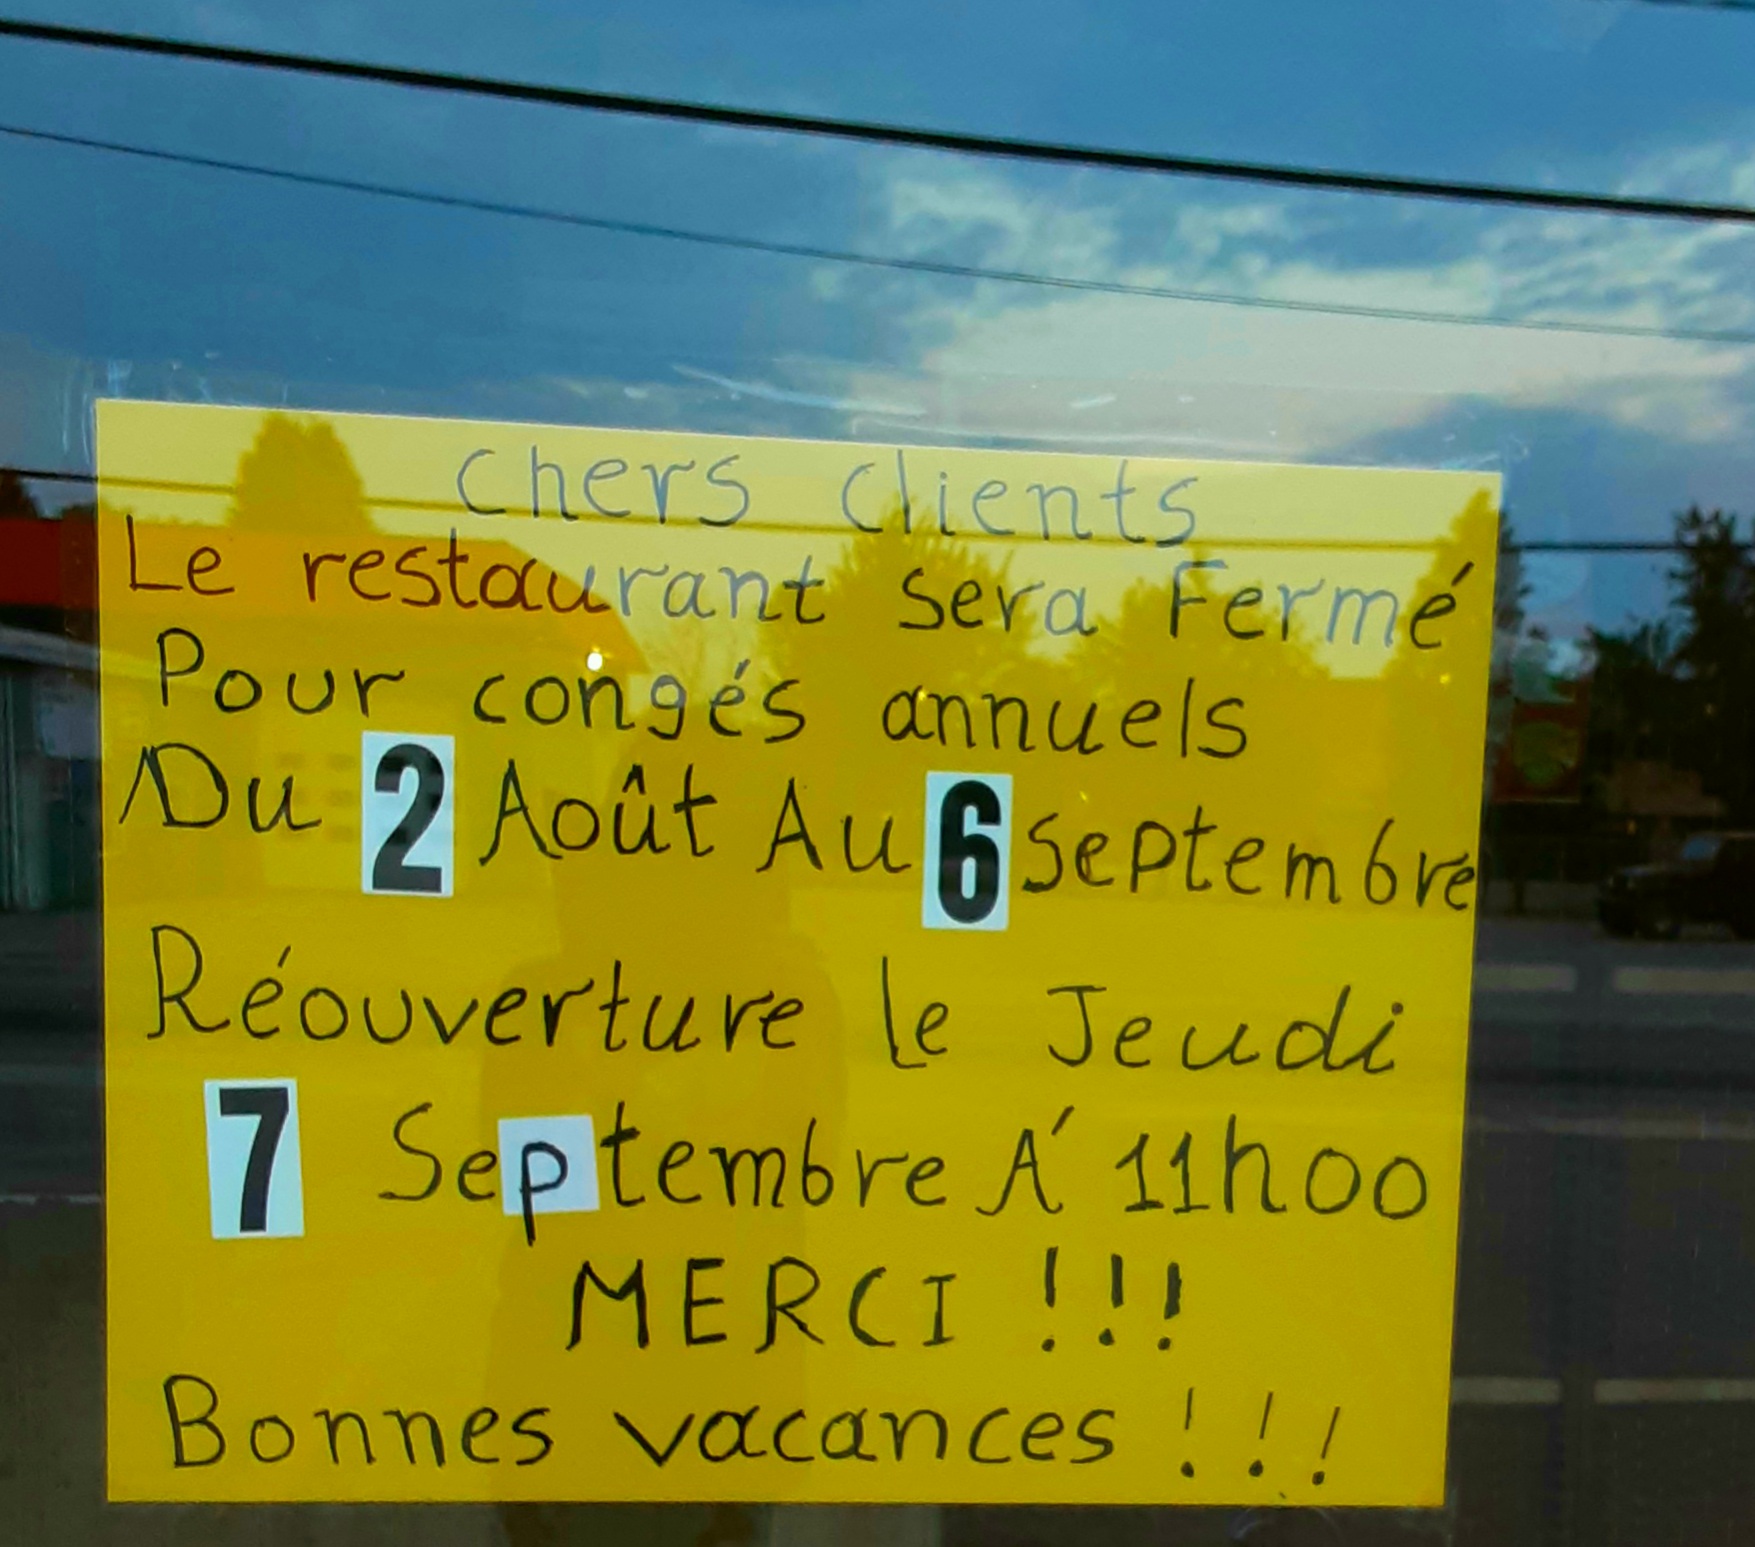 Chers clients
Le restaurant sera Fermé
Pour congés annuels
Du 2 Août Au 6 Septembre
Réouverture le Jeudi
7 Septembre Á 11h00
MERCI !!!
Bonnes vacances !!!